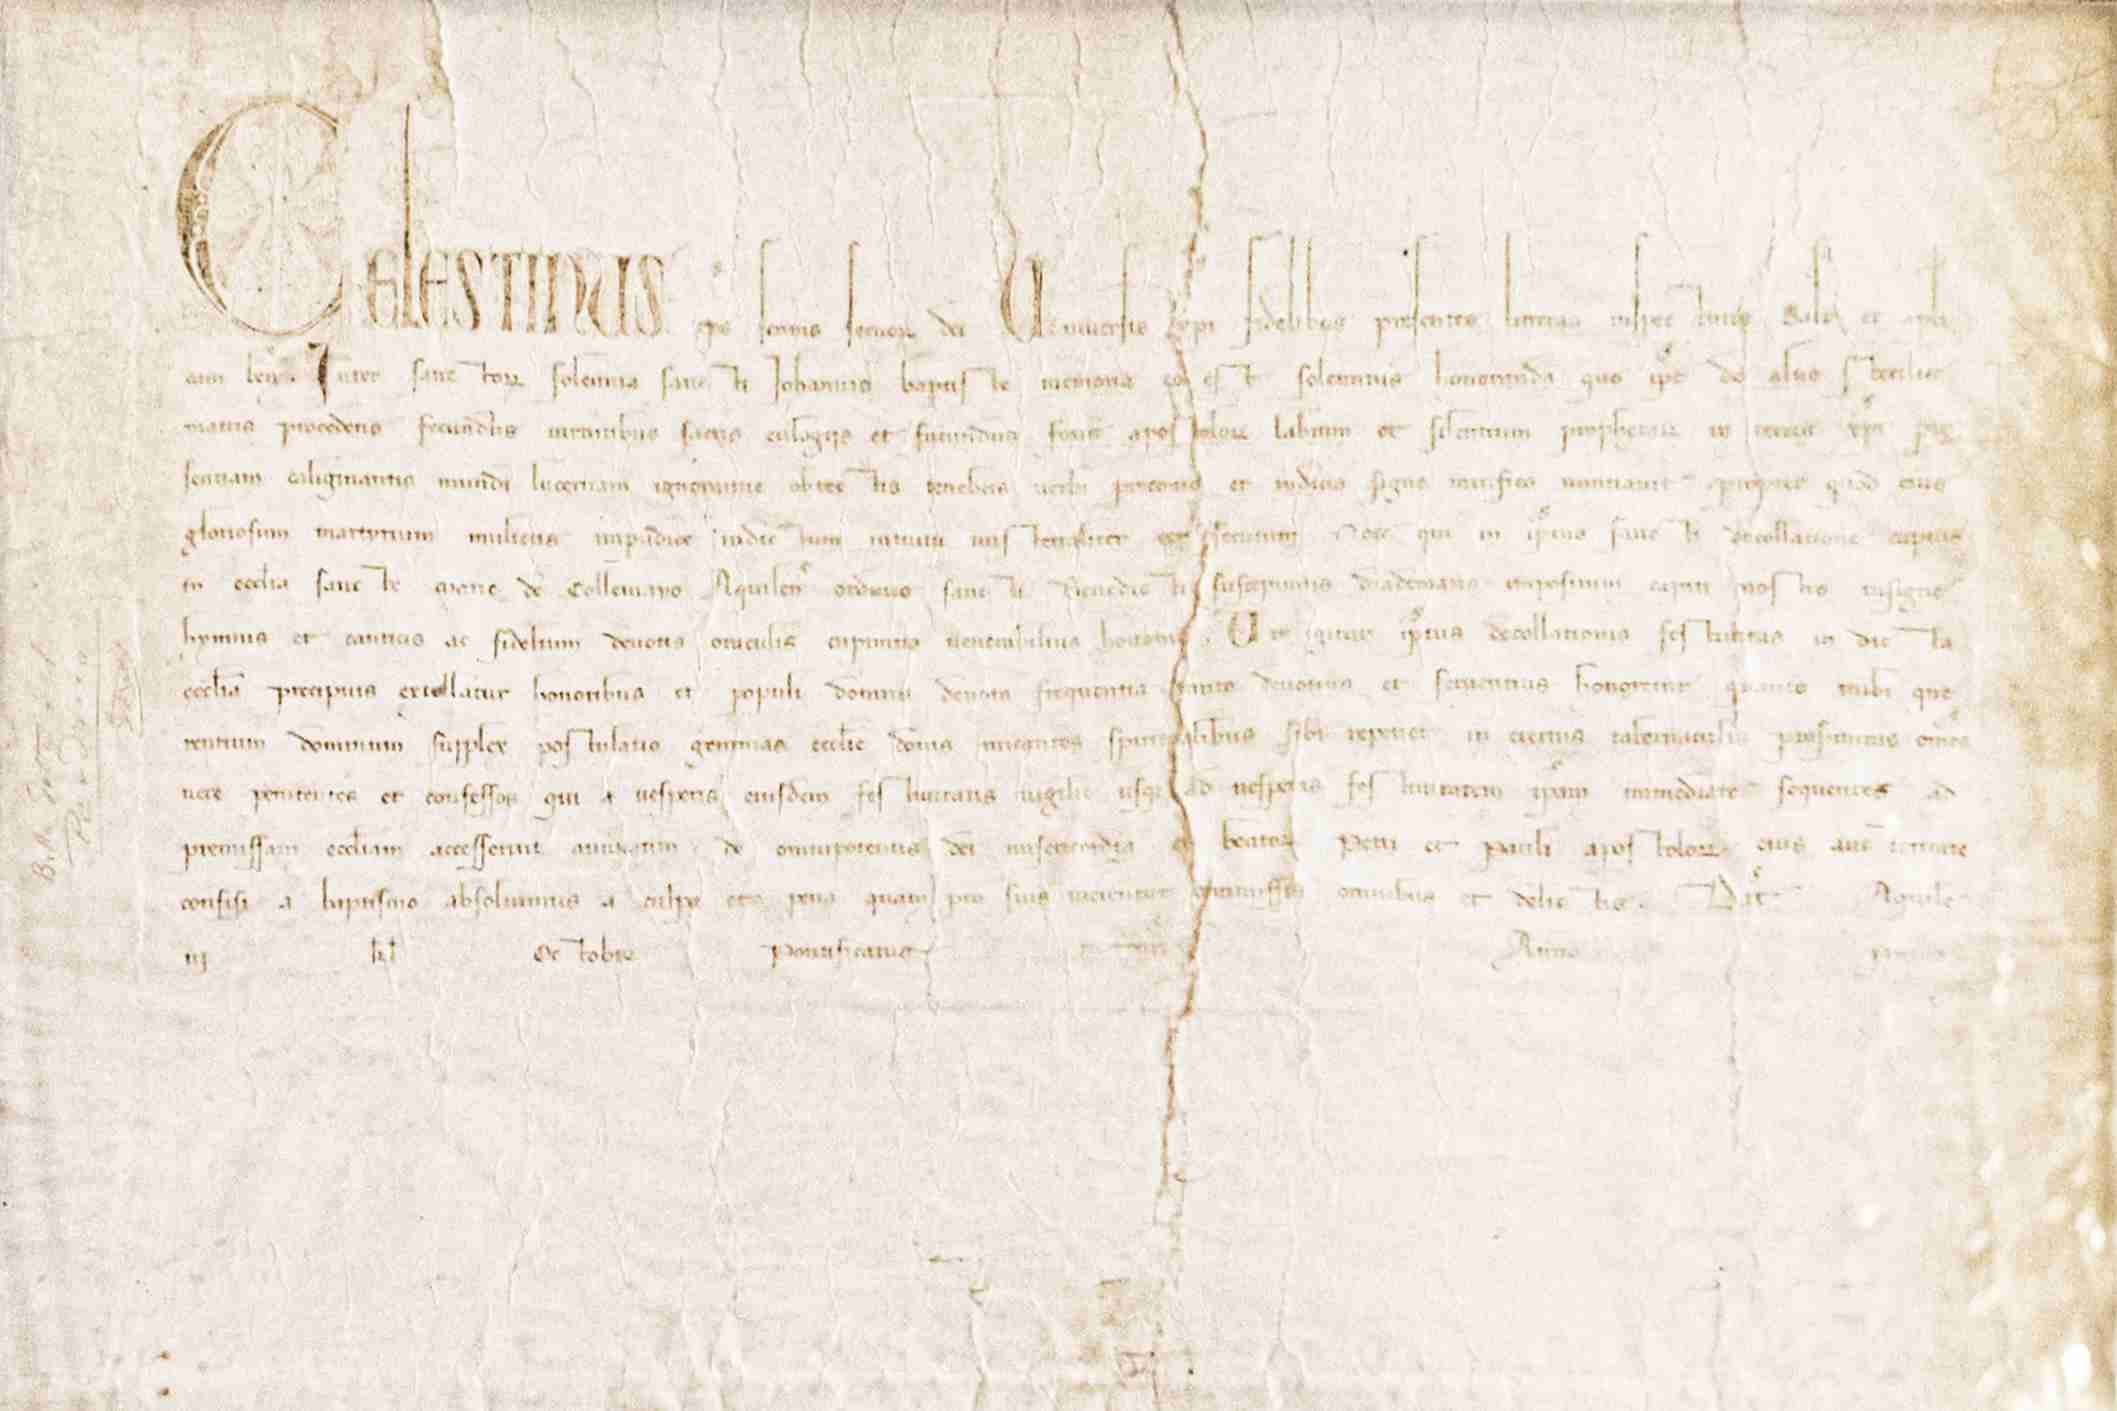 Celestinus ep̄s seruus seruoꝝ dei Uniuersis xp̄i fidelibus presentes litteras inspecturis Salt̄ et apl̄i
cam ben̄. Inter sanctoꝝ solēnia sancti Iohannis baptiste memoria eo est solennius honoranda quo ip̄e de aluo sterilis
matris procedens fecundus uirtutibus sacris eulogijs et facundus fons apostoloꝝ labium et silentium prophetaꝝ in terris xp̄i pre
sentiam caliginantis mundi lucernam ignorantie obtectis tenebris uerbi preconio et indicio signo mirifico nuntiauit propter quod eius
gloriosum martyrium mulieris impudice indictum intuitu misterialiter est secutum Nos qui in ip̄ius sancti decollatione capitis
in eccl̄ia sancte Marie de Collemayo Aquileñ ordinis sancti Benedicti suscepimus diadematis impositum capiti nostro insigne
hymnis et canticis ac fidelium deuotis oraculis cupimus uenerabilius honorari. Ut igitur ip̄ius decollationis festiuitas in dicta
eccl̄ia precipuis extollatur honoribus et populi domini deuota frequentia tanto deuotius et feruentius honoretur quanto inibi que
rentium dominum supplex postulatio gemmas eccl̄ie donis micantes spiritualibus sibi reperiet in eternis tabernaculis profuturas om̄es
uere penitentes et confessos qui a uesperis eiusdem festiuitatis uigilie usque ad uesperas festiuitatem ip̄am immediate sequentes ad
premissam eccl̄iam accesserint annuatim de omnipotentis dei misericordia et beatoꝝ Petri et Pauli apostoloꝝ eius auctoritate
confisi a baptismo absoluimus a culpa et pena quam pro suis merentur commissis omnibus et delictis. Dat̄ Aquile
iij kl̄ Octobr̄ Pontificatus nr̄i Anno primo